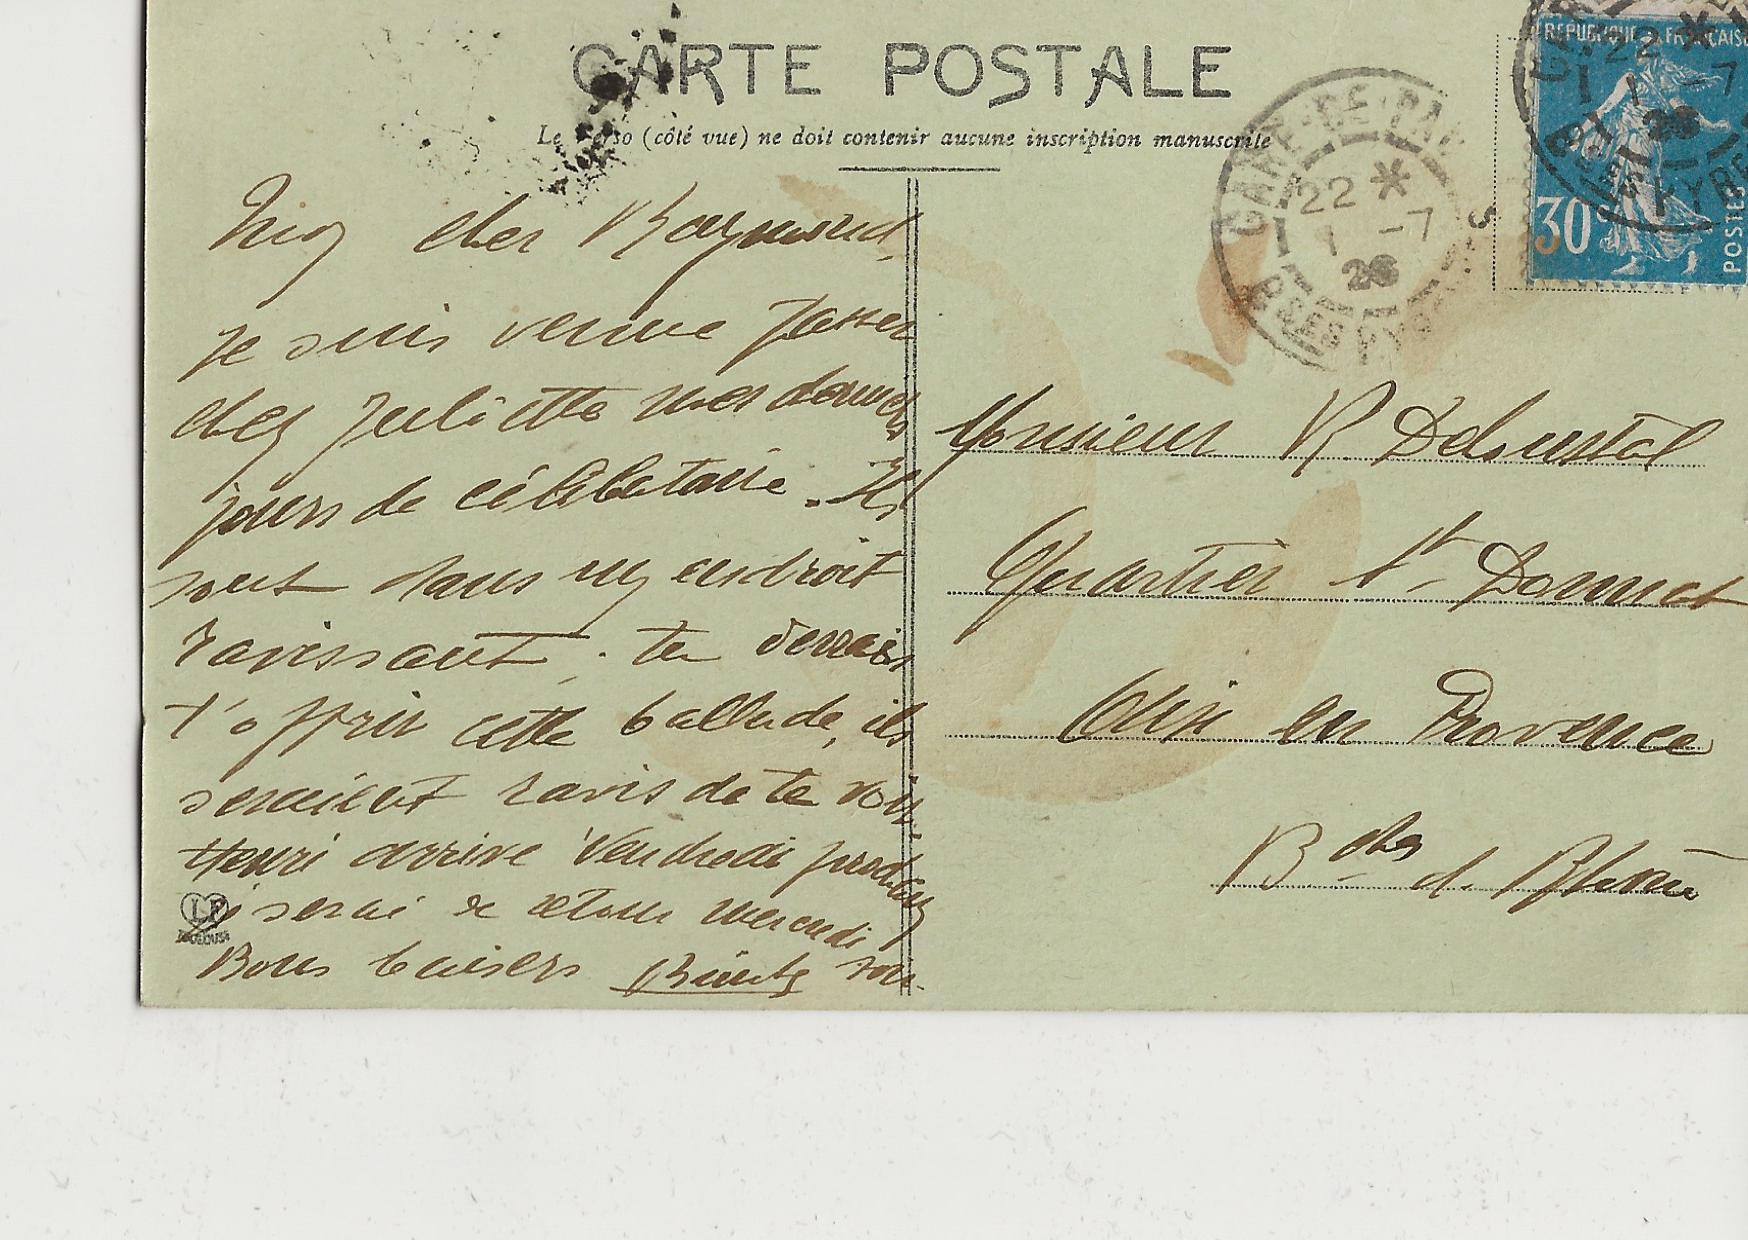 CARTE POSTALE
Le Verso (côté vue) ne doit contenir aucune inscription manuscrite
Mon cher Raymond,
je suis venue passer
chez Juliette mes derniers
jours de célibataire. Ils
sont dans un endroit
ravissant. tu devrais
t'offrir cette ballade, ils
seraient ravis de te voir.
Henri arrive Vendredi prochain
je serai de retour mercredi
Bons baisers
LP
TOULOUSE
REPUBLIQUE FRANÇAISE
30c
POSTES
GARE-DE-PAU
22 *
1 -7
26
BSES PYRENEES
Monsieur R.
Quartier St Donnat
Aix en Provence
Bches d. Rhône